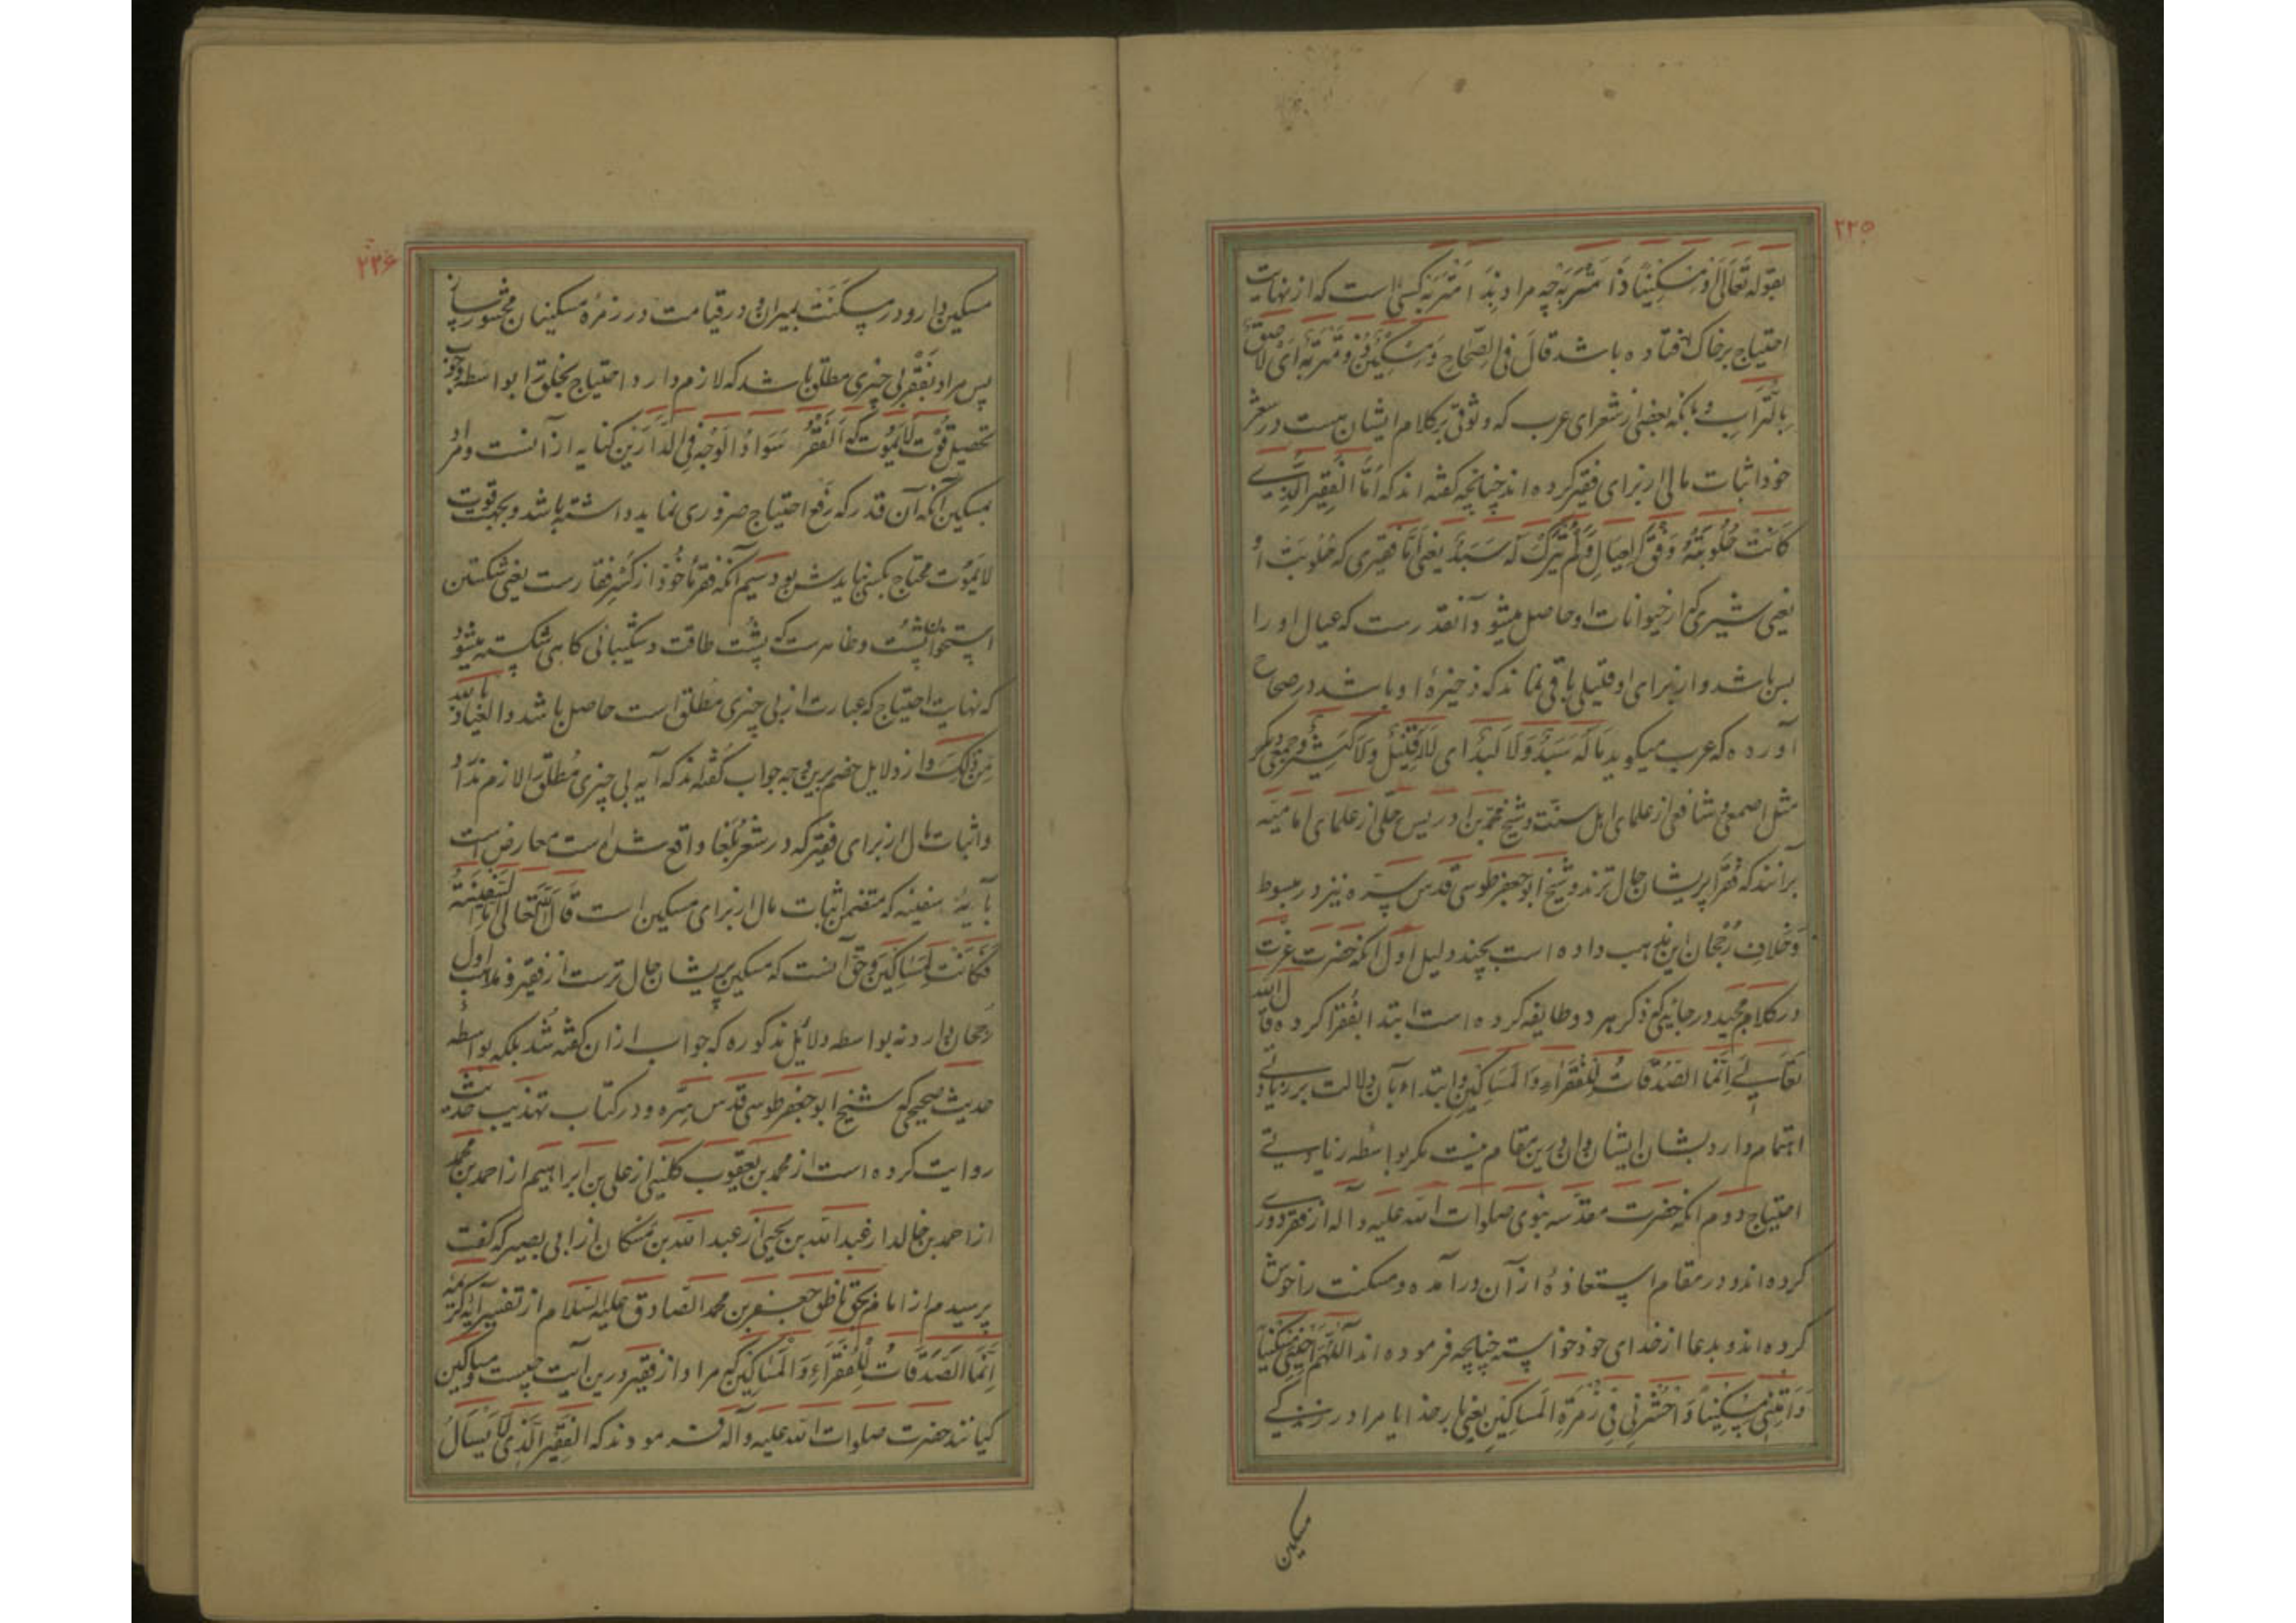 ۲۲۵
بقوله تعالی او مسکینا ذا متربة چه مراد بذا متربه کسی است که از نهایت
احتیاج بر خاک افتاده باشد قال فی الصحاح و مسکین ذو متربة ای لاصق
بالتراب و بانکه بعضی از شعرای عرب که وثوق بر کلام ایشان هست در شعر
خود اثبات مالی از برای فقیر کرده‌اند چنانچه گفته‌اند که اما الفقیر الذی
کانت حلوبته وفق العیال و لم یترک له سبد یعنی اما فقیری که حلوبت او
یعنی شیری که از حیوانات او حاصل میشود آنقدر است که عیال او را
بس باشد و از برای او قلیلی باقی نماند که ذخیرهٔ او باشد در صحاح
آورده که عرب میگوید ما له سبد و لا لبد ای لا قلیل و لا کثیر و جمعی دیگر
مثل اصمعی و شافعی از علمای اهل سنت و شیخ محمد بن ادریس حلی از علمای امامیه
برآنند که فقرا پریشان حال ترند و شیخ ابو جعفر طوسی قدس سره نیز در مبسوط
و خلاف رجحان این مذهب داده است بچند دلیل اول آنکه حضرت عزت
در کلام مجید در جائی که ذکر هر دو طایفه کرده است ابتدا بفقرا کرده قال الله
تعالی انما الصدقات للفقراء و المساکین و ابتداء بآن دلالت بر زیادتی
اهتمام دارد بشان ایشان و آن درین مقام نیست مگر بواسطه زیادتی
احتیاج دوم آنکه حضرت مقدسه نبوی صلوات الله علیه و آله از فقر دوری
کرده‌اند و در مقام استعاذهٔ از آن درآمده و مسکنت را خوش
کرده‌اند و بدعا از خدای خود خواسته چنانچه فرموده‌اند اللهم احینی مسکینا
و امتنی مسکینا و احشرنی فی زمرة المساکین یعنی بار خدایا مرا در زندگی
مسکین
۲۲۶
مسکین دار و در مسکنت بمیران و در قیامت در زمرهٔ مسکینان محشور ساز
پس مراد بفقر بی چیزی مطلق باشد که لازم دارد احتیاج بخلق را بواسطه وجوب
تحصیل قوت لا یموت که الفقر سواد الوجه فی الدارین کنایه از آنست و مراد
بمسکین آنکه آن قدر که رفع احتیاج ضروری نماید داشته باشد و بجهت قوت
لا یموت محتاج بکسی نبایدش بود سیم آنکه فقر ماخوذ از کسر فقار است یعنی شکستن
استخوان پشت و ظاهر است که پشت طاقت و شکیبائی گاهی شکسته میشود
که نهایت احتیاج که عبارت از بی چیزی مطلق است حاصل باشد و العیاذ بالله
من ذلک و از دلایل خصم برین وجه جواب گفته‌اند که آیه بی چیزی مطلق را لازم ندارد
و اثبات مال از برای فقیر که در شعر بلغا واقع شده است معارض است
بآیهٔ سفینه که متضمن اثبات مال از برای مسکین است قال الله تعالی اما السفینة
فکانت لمساکین و حق آنست که مسکین پریشان حال ترست از فقیر و مذهب اول
رجحان دارد نه بواسطه دلائل مذکوره که جواب از آن گفته شد بلکه بواسطهٔ
حدیث صحیحی که شیخ ابو جعفر طوسی قدس سره و در کتاب تهذیب حدیث
روایت کرده است از محمد بن یعقوب کلینی از علی بن ابراهیم از احمد بن محمد
از احمد بن خالد از عبد الله بن یحیی از عبد الله بن مسکان از ابی بصیر که گفت
پرسیدم از امام بحق ناطق جعفر بن محمد الصادق علیه السلام از تفسیر آیه کریمه
انما الصدقات للفقراء و المساکین که مراد از فقیر درین آیت چیست و مساکین
کیانند حضرت صلوات الله علیه و آله فرمودند که الفقیر الذی لا یسأل